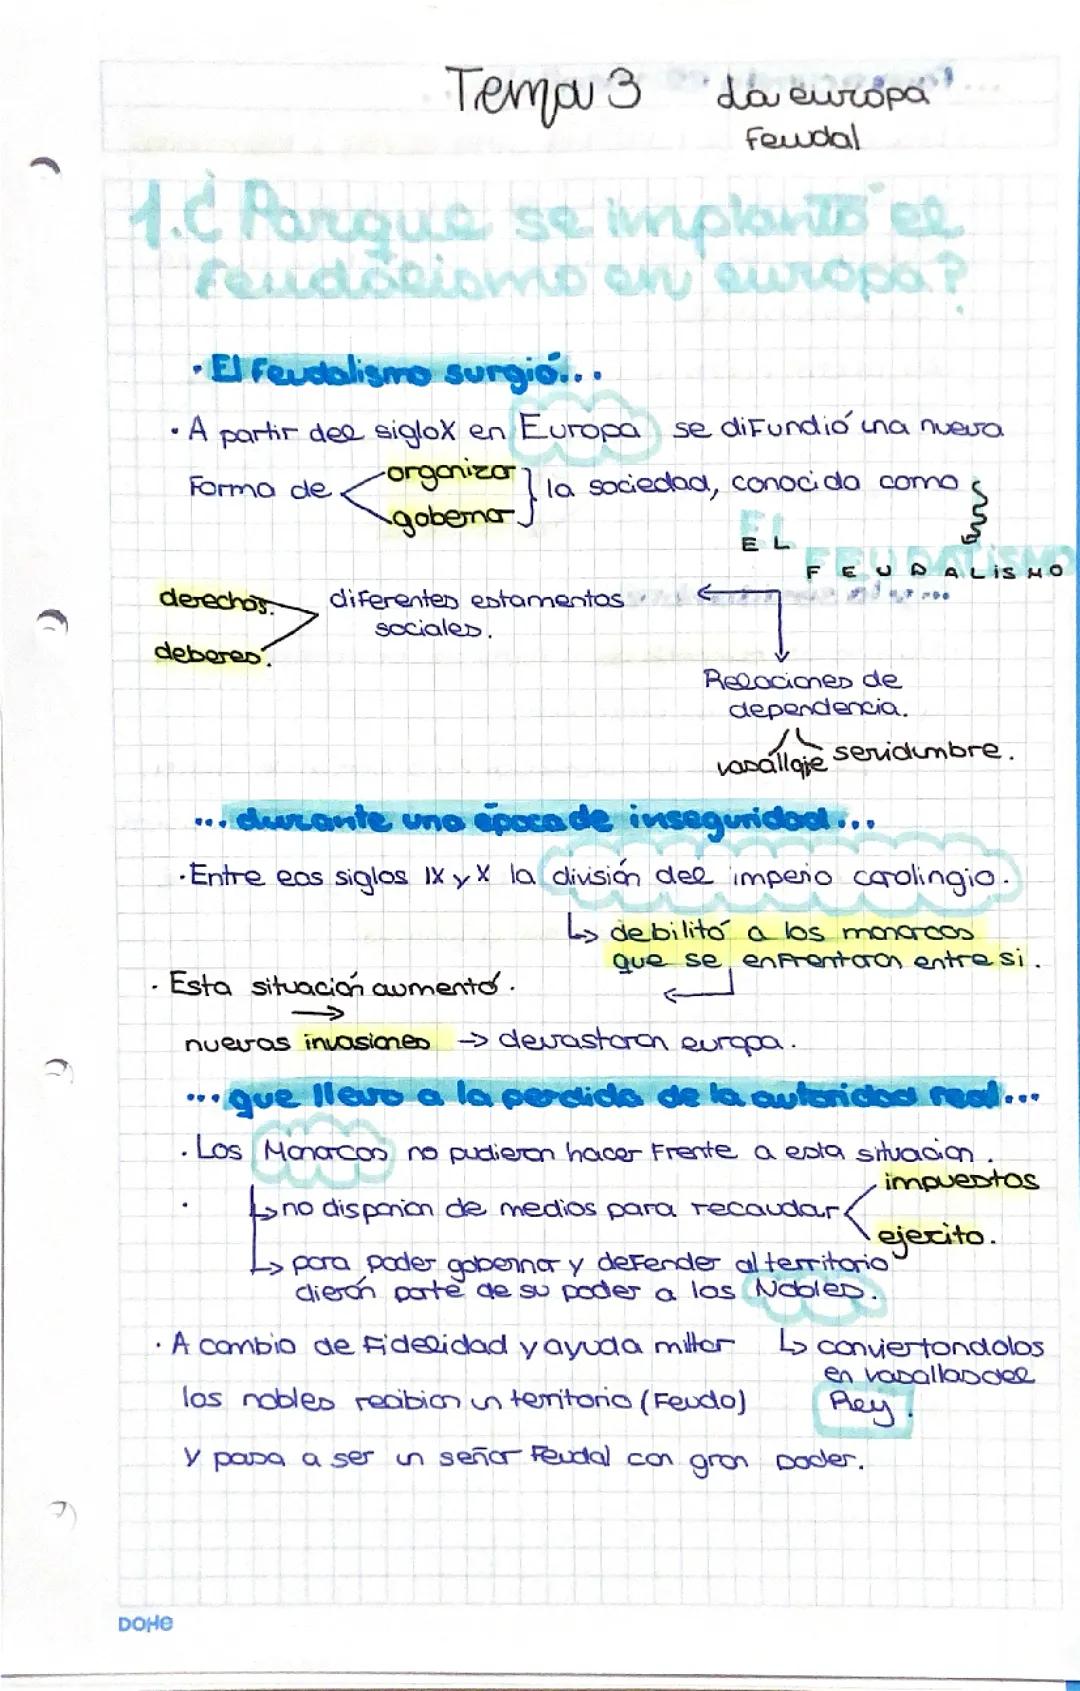 Tema 3 "La europa
Feudal
1. ¿ Porque se implantó el
feudalismo en europa?
· El feudalismo surgió...
· A partir del siglo X en Europa se difundió una nueva
Forma de organizar la sociedad, conocida como
gobernar
EL
FEUDALISMO
derechos. diferentes estamentos
sociales.
deberes.
Relaciones de
dependencia.
vasallaje servidumbre.
... durante una época de inseguridad...
· Entre los siglos IX y X la división del imperio carolingio.
↳ debilitó a los monarcas
que se enfrentaron entre si.
· Esta situación aumentó.
nuevas invasiones → devastaron europa.
... que llevo a la perdida de la autoridad real...
· Los Monarcas no pudieron hacer Frente a esta situacion.
impuestos
· ↳ no disponian de medios para recaudar
ejercito.
↳ para poder gobernar y defender al territorio
dierón parte de su poder a los Nobles.
· A cambio de Fidelidad y ayuda militar ↳ conviertondolos
en vasallos del
los nobles recibian un territorio (Feudo) Rey.
Y pasa a ser un señor Feudal con gran poder.
DOHE